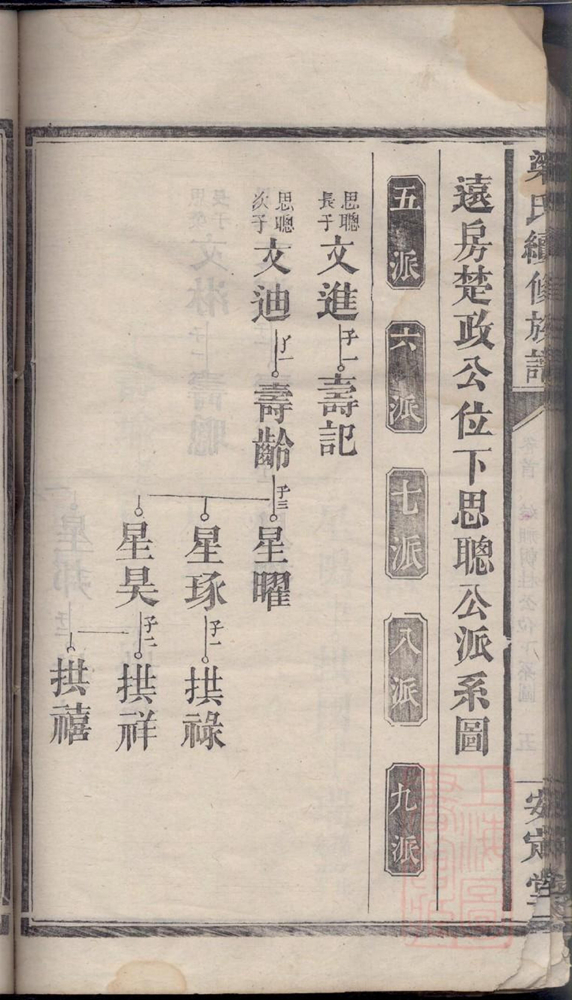 梁氏續修族譜
安定堂
遠房楚政公位下思聰公派系圖
五派 六派 七派 八派 九派
思聰長子 文進 子一 壽記
思聰次子 文迪 子一 壽齡 子三 星曜
星琢 子一 拱祿
星昊 子二 拱祥
拱禧